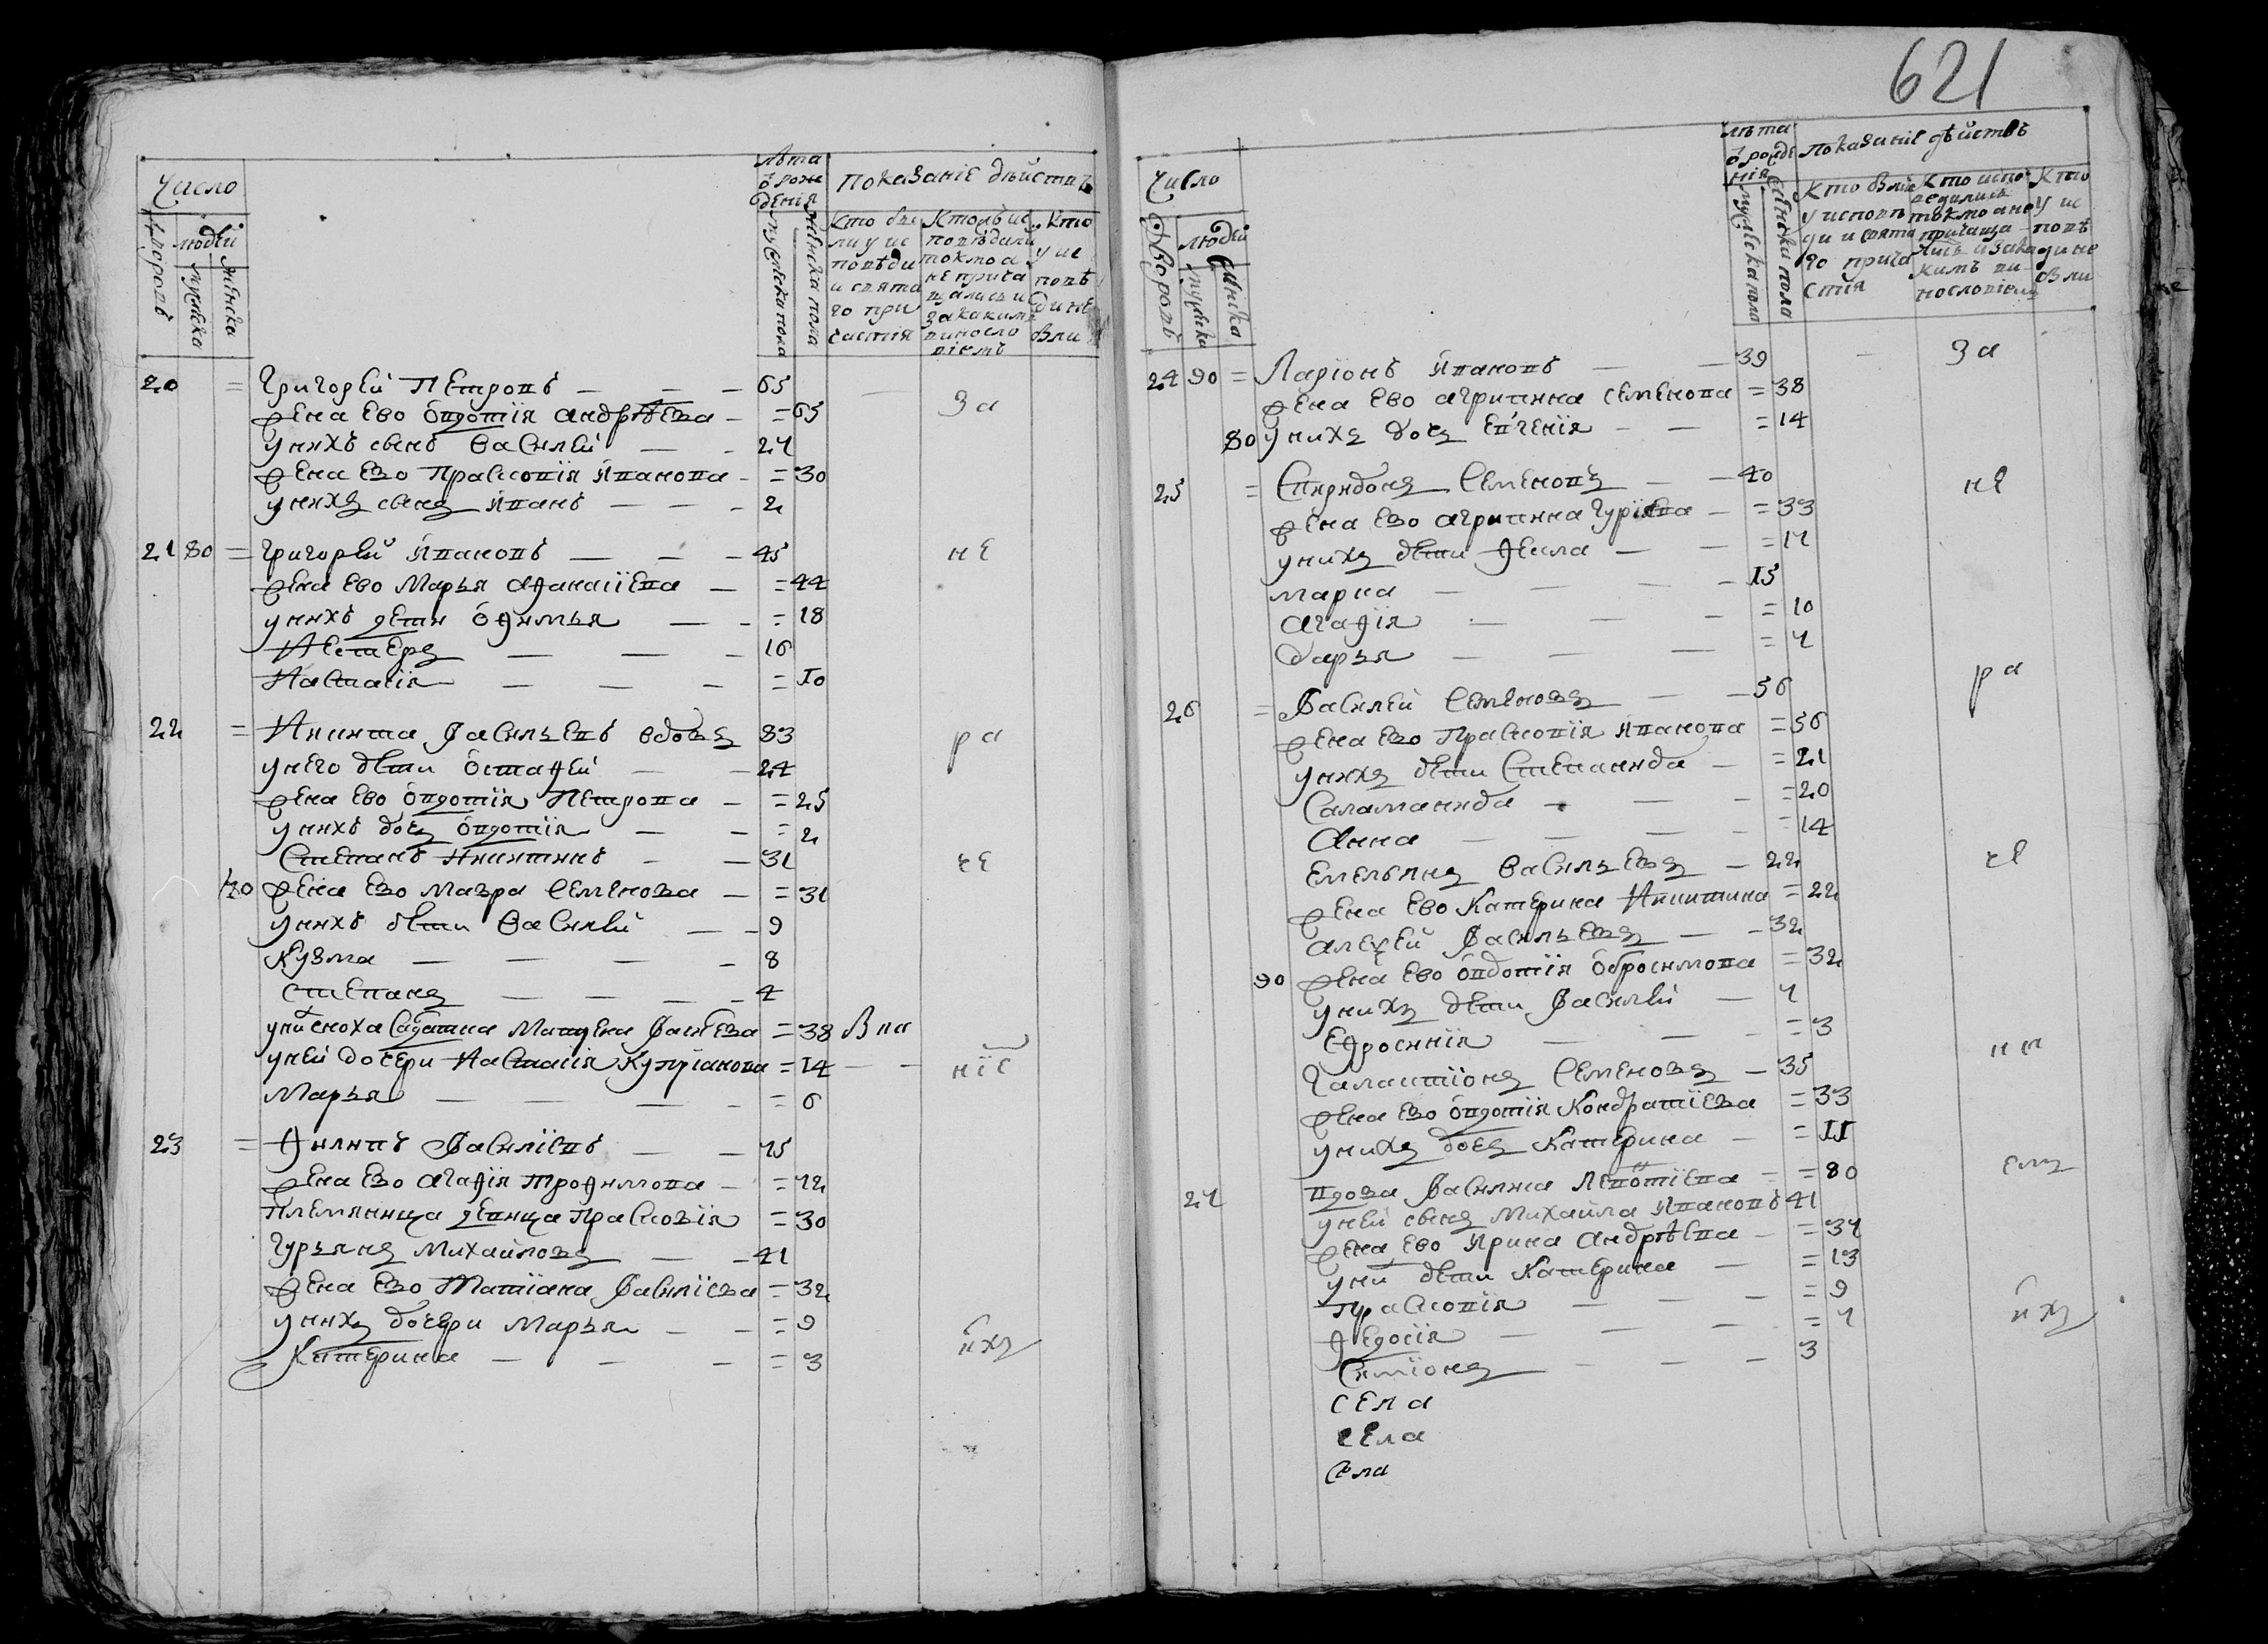 621
Число
лѣта
ѿ рож
дения
Показаніе дѣиствъ
дворовъ
людей
мужеска
женска
мужеска пола
женска пола
Кто бы
ли у ис
повѣди
и свята
го при
частия
Кто ис
повѣдали
токмо а
не прича
щались и
за каким
винносло
виемъ
Кто
у ис
повѣ
ди не
были
20 = Григорей Петровъ — — — 65
Жена Ево Овдотія Андрѣева — = 65 За
у нихъ сынъ Василей — — 27
Жена Ево Прасковія Иванова — = 30
у нихъ сынъ Иванъ — — — 2
21 80 = Григорей Ивановъ — — — 45 не
Жена Ево Марья Афанасиева — = 44
у нихъ дети Офимья — — = 18
Нестеръ — — — 16
Настасія — — — = 10
22 = Никита Васильевъ вдовъ 83 ра
у него дети Остафей — — 24
Жена Ево Овдотія Петрова — = 25
у нихъ дочь Овдотія — — = 2
Степанъ Никитинъ — — 31 че
70 Жена Ево Мавра Семенова — = 31
у нихъ дети Василей — — 9
Кузма — — — — 8
Степанъ — — — — 4
сноха Матрена = 38
у ней дочери Настасія Купріанова = 14 — — ніе
Марья — — — — = 6
23 = Филипъ Василіевъ — — 75
Жена Ево Агафія Трофимова — = 72
Племянница девица Прасковія = 30
Гурьянъ Михайловъ — — 41
Жена Ево Татіана Василіева = 32
у нихъ дочери Марья — — = 9
Катерина — — — = 3 ихъ
Число
лѣта
ѿ рожде
ния
Показание дѣйствъ
Дворовъ
людей
мужеска
женска
мужеска пола
женска пола
Кто были
у исповѣ
ди и свята
го прича
стия
Кто испо
ведались
токмо а не
прича
щались и за ка
кимъ ви
нословием
Кто
у ис
повѣ
ди не
были
24 90 = Ларіонъ Ивановъ — — 39 — За
Жена Ево Агрипина Семенова = 38
80 у нихъ дочь Евгенія — — = 14
25 = Спиридонъ Семеновъ — — 40 не
Жена Ево Агрипина Гуріева — = 33
у нихъ дети Фекла — — = 17
Марка — — — — 15
Агафія — — — = 10
Дарья — — — = 7
26 = Василей Семеновъ — — 56 ра
Жена Ево Прасковія Иванова = 56
у нихъ дети Степанида — = 21
Саламанида — — — = 20
Анна — — — — = 14
Емельянъ Васильевъ — 22 че
Жена Ево Катерина Никитина = 22
Алексей Васильевъ — — 32
90 Жена Ево Овдотія Обросимова = 32
у нихъ дети Василей — 7
Ефросинія — — — = 3
Галактіонъ Семеновъ — 35 ни
Жена Ево Овдотія Кондратіева = 33
у нихъ дочь Катерина — = 11
27 вдова Василиса Левонтіева = 80 емъ
у ней сынъ Михайла Ивановъ 41
Жена Ево Ирина Андрѣева — = 37
у ни дети Катерина — = 13
Прасковія — — — = 9
Федосія — — — = 7 ихъ
Симіонъ — — — 3
села
села
села